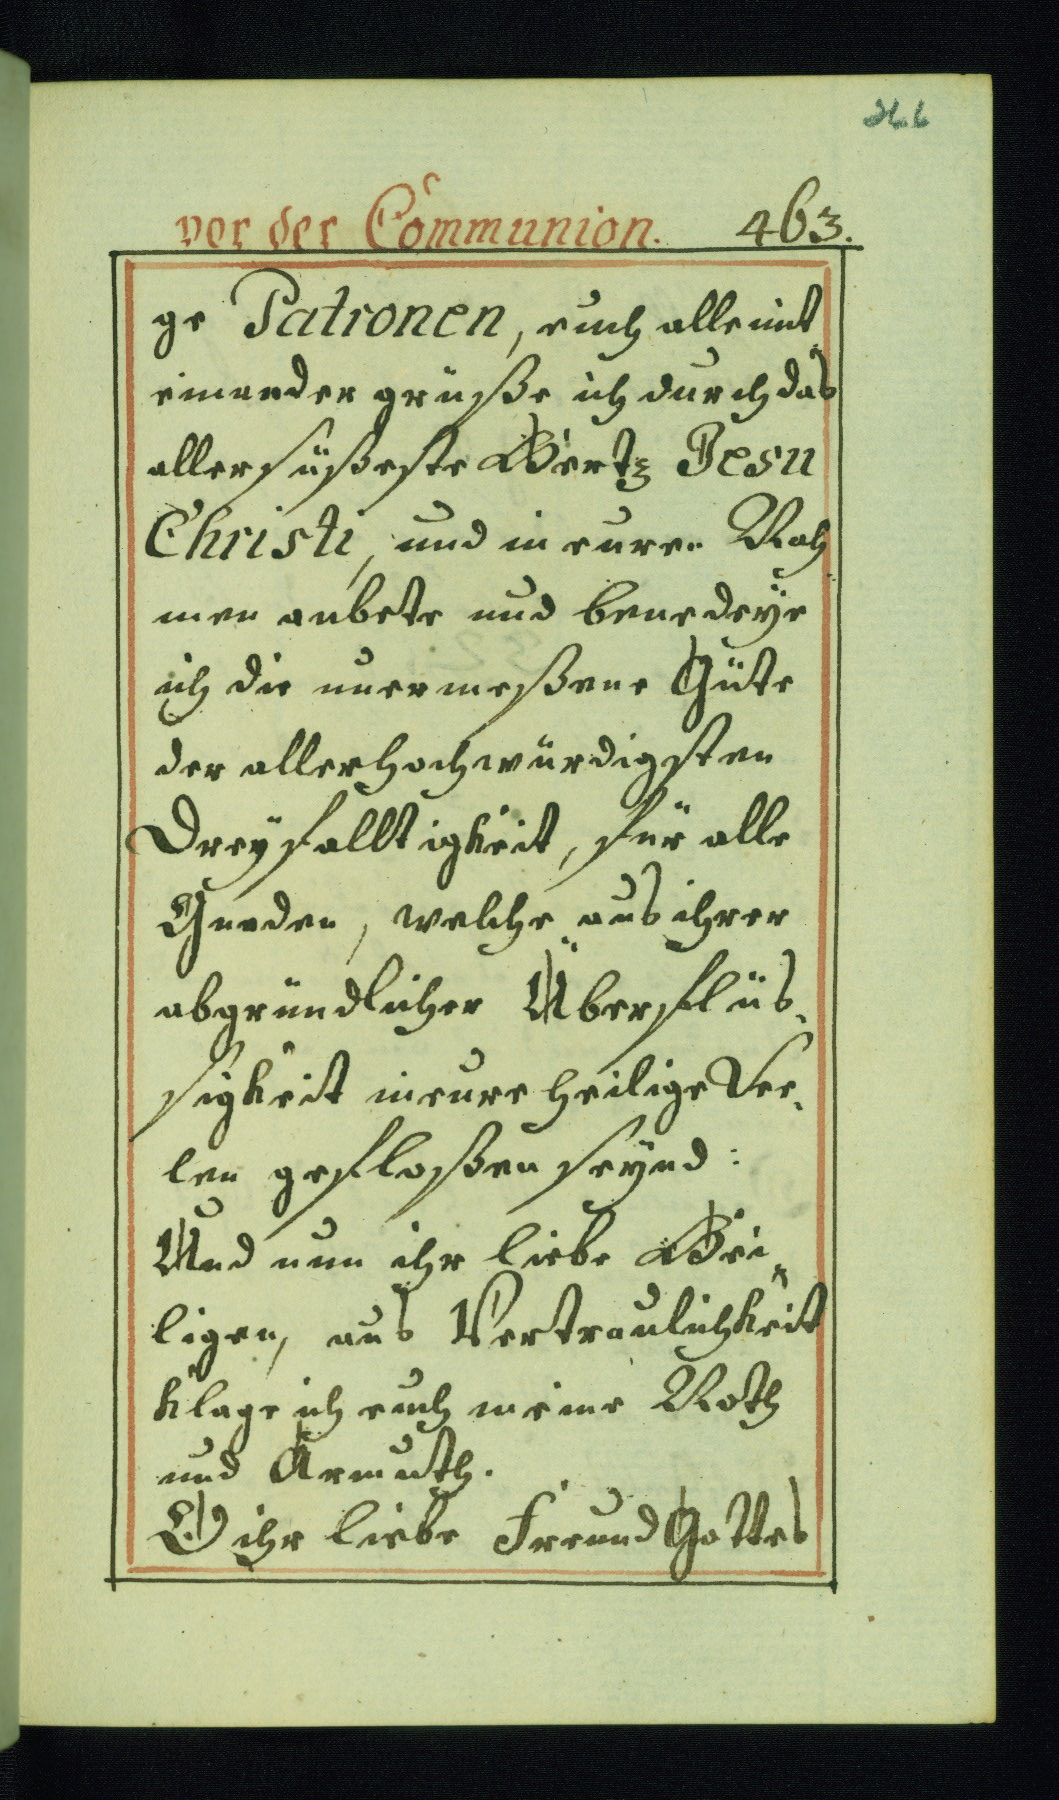 266
vor der Communion. 463.
ge Patronen, euch alle mit
einander grüße ich durch das
allersüßeste Hertz Jesu
Christi, und in euren Nah
men anbete und benedeÿe
ich die unermeßene Güte
der allerhochwürdigsten
Dreÿfalltigkeit, für alle
Gnaden, welche aus ihrer
abgründlicher Überflüs,
sigkeit in eure heilige See,
len gefloßen seÿnd:
Und nun ihr liebe Hei,
ligen, aus Vertraulichkeit
klage ich euch meine Noth
und Armuth.
O ihr liebe Freund Gottes